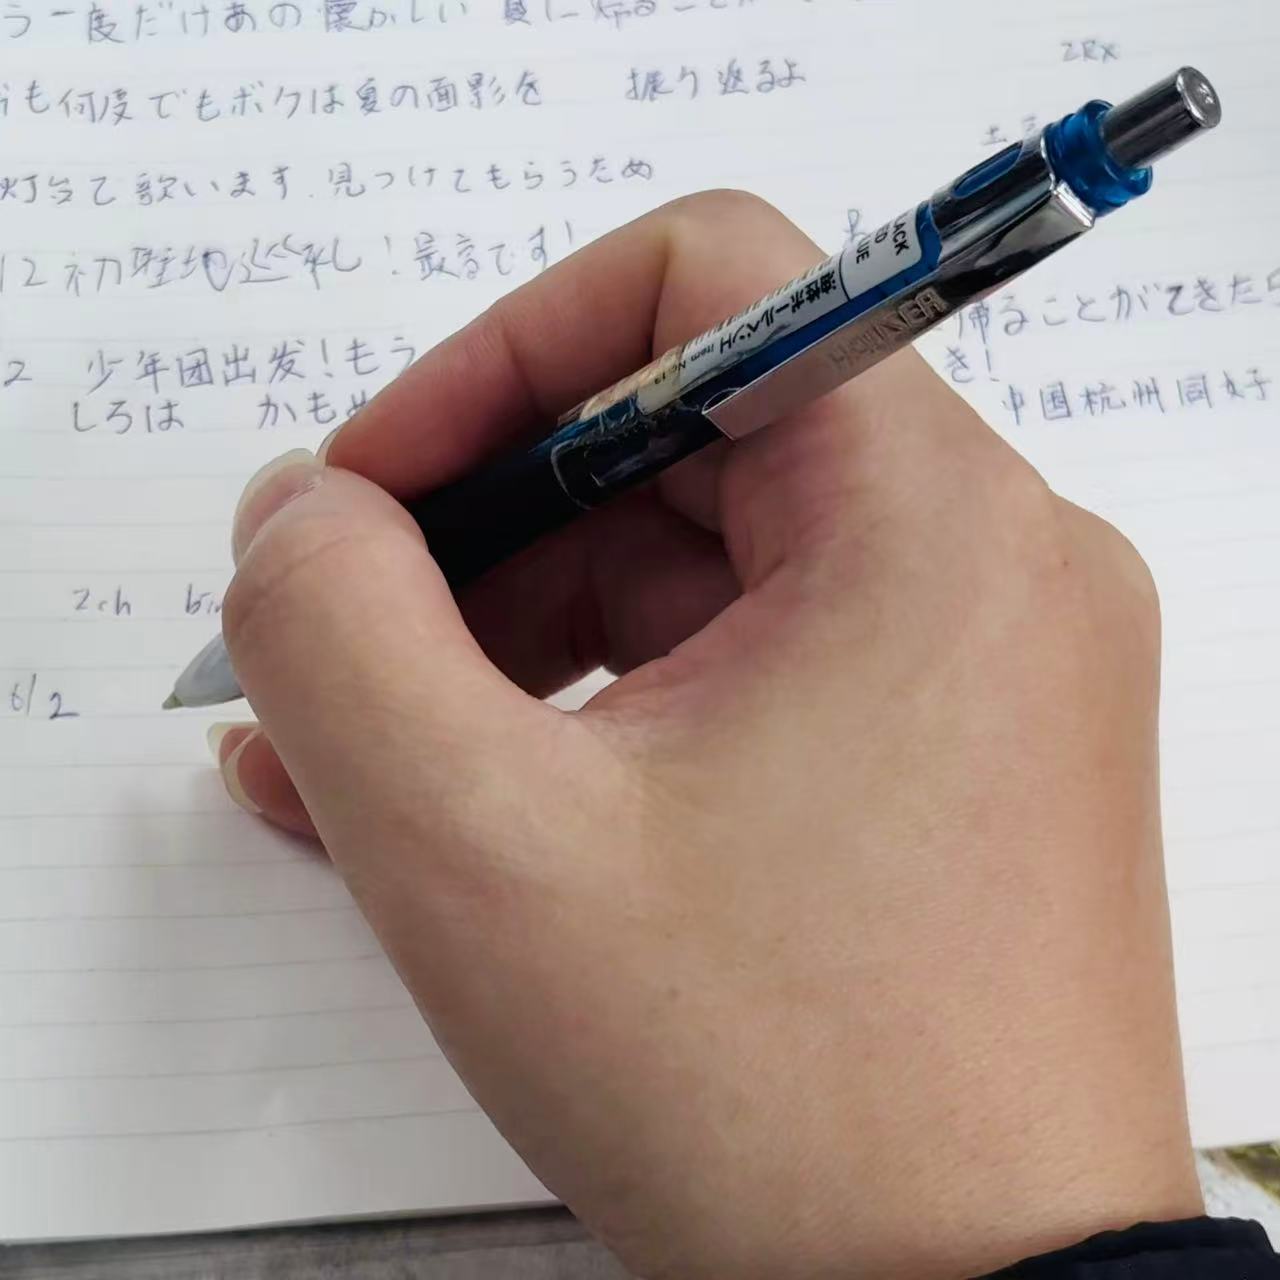 う一度だけあの懐かしい 夏に帰ること
も何度でもボクは夏の面影を 振り返るよ
ZRX
灯台で歌います.見つけてもらうため
12 初聖地巡礼!最高です!
2 少年団出发!もう
帰ることができた
しろは かもめ
き!
中国杭州同好
2ch
6/2
BLACK
RED
BLUE
油性ボールペン